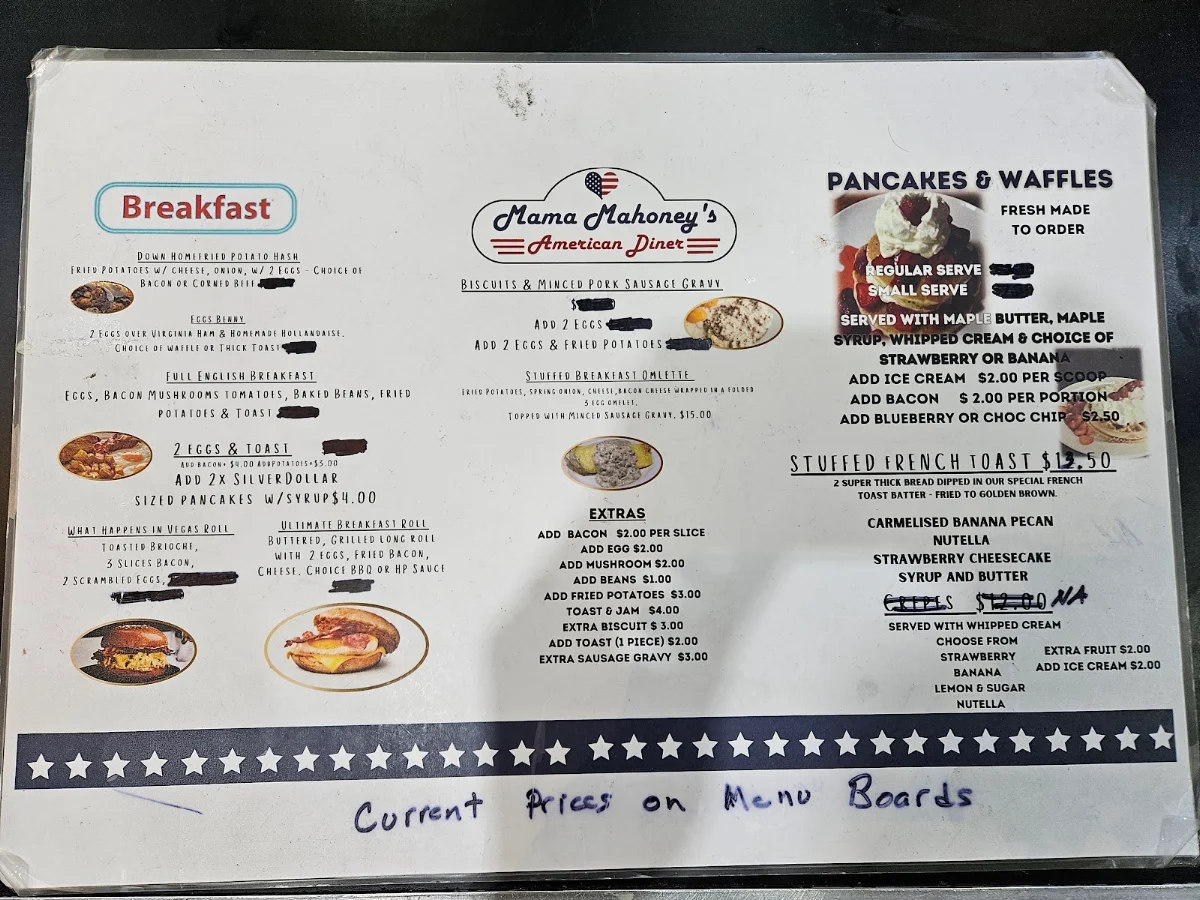 Breakfast
DOWN HOMEFRIED POTATO HASH
FRIED POTATOES W/ CHEESE, ONION, W/ 2 EGGS - CHOICE OF
BACON OR CORNED BEEF
EGGS BENNY
2 EGGS OVER VIRGINIA HAM & HOMEMADE HOLLANDAISE.
CHOICE OF WAFFLE OR THICK TOAST
FULL ENGLISH BREAKFAST
EGGS, BACON MUSHROOMS TOMATOES, BAKED BEANS, FRIED
POTATOES & TOAST
2 EGGS & TOAST
ADD BACON= $4.00 ADD POTATOES=$3.00
ADD 2X SILVERDOLLAR
SIZED PANCAKES W/SYRUP$4.00
WHAT HAPPENS IN VEGAS ROLL
TOASTED BRIOCHE,
3 SLICES BACON,
2 SCRAMBLED EGGS,
ULTIMATE BREAKFAST ROLL
BUTTERED, GRILLED LONG ROLL
WITH 2 EGGS, FRIED BACON,
CHEESE. CHOICE BBQ OR HP SAUCE
Mama Mahoney's
American Diner
BISCUITS & MINCED PORK SAUSAGE GRAVY
$
ADD 2 EGGS
ADD 2 EGGS & FRIED POTATOES
STUFFED BREAKFAST OMLETTE
FRIED POTATOES, SPRING ONION, CHEESE, BACON CHEESE WRAPPED IN A FOLDED
3 EGG OMELET.
TOPPED WITH MINCED SAUSAGE GRAVY. $15.00
EXTRAS
ADD BACON $2.00 PER SLICE
ADD EGG $2.00
ADD MUSHROOM $2.00
ADD BEANS $1.00
ADD FRIED POTATOES $3.00
TOAST & JAM $4.00
EXTRA BISCUIT $ 3.00
ADD TOAST (1 PIECE) $2.00
EXTRA SAUSAGE GRAVY $3.00
PANCAKES & WAFFLES
FRESH MADE
TO ORDER
REGULAR SERVE
SMALL SERVE
SERVED WITH MAPLE BUTTER, MAPLE
SYRUP, WHIPPED CREAM & CHOICE OF
STRAWBERRY OR BANANA
ADD ICE CREAM $2.00 PER SCOOP
ADD BACON $ 2.00 PER PORTION
ADD BLUEBERRY OR CHOC CHIP $2.50
STUFFED FRENCH TOAST $13.50
2 SUPER THICK BREAD DIPPED IN OUR SPECIAL FRENCH
TOAST BATTER - FRIED TO GOLDEN BROWN.
CARMELISED BANANA PECAN
NUTELLA
STRAWBERRY CHEESECAKE
SYRUP AND BUTTER
CREPES $12.00 NA
SERVED WITH WHIPPED CREAM
CHOOSE FROM
STRAWBERRY
BANANA
LEMON & SUGAR
NUTELLA
EXTRA FRUIT $2.00
ADD ICE CREAM $2.00
Current Prices on Menu Boards